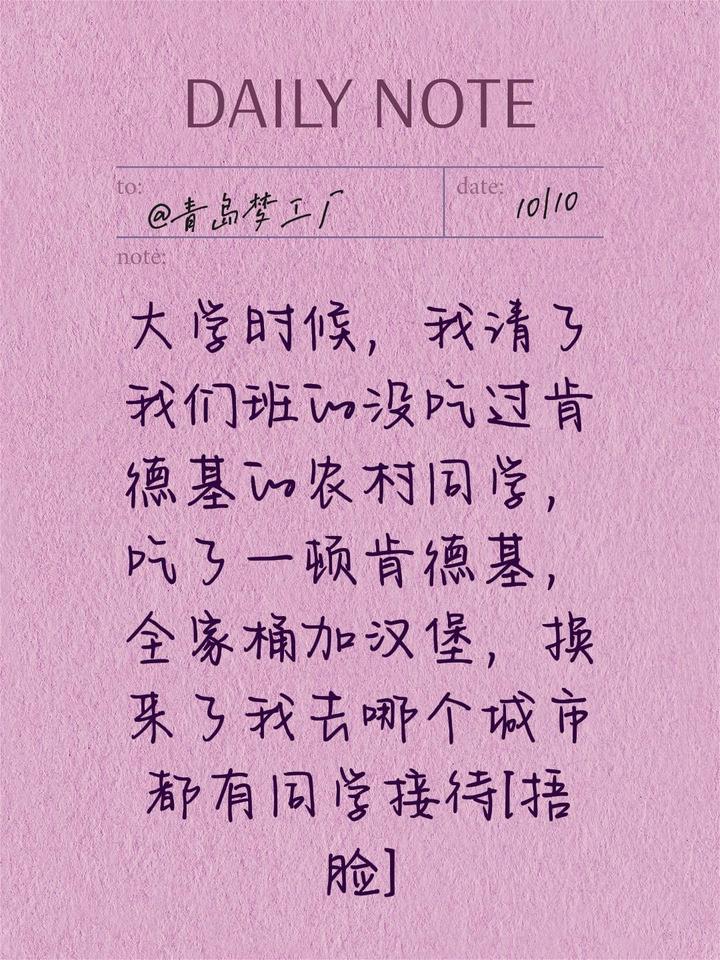 DAILY NOTE
to:
@青岛梦工厂
date:
10/10
note:
大学时候，我请了
我们班的没吃过肯
德基的农村同学，
吃了一顿肯德基，
全家桶加汉堡，换
来了我去哪个城市
都有同学接待[捂
脸]